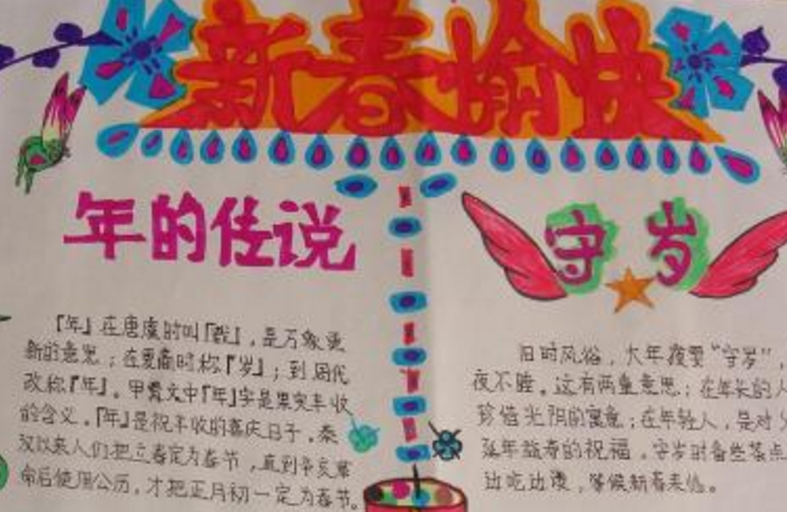 新春愉快
年的传说
『年』在唐虞时叫『载』，是万象更
新的意思；在夏商时称『岁』；到周代
改称『年』。甲骨文中『年』字是果实丰收
的含义。『年』是祝丰收的喜庆日子。秦
汉以来人们把立春定为春节，直到辛亥革
命后使用公历，才把正月初一定为春节。
守岁
旧时风俗，大年夜要“守岁”，
夜不睡。这有两重意思；在年长的人
珍惜光阴的寓意；在年轻人，是对父
延年益寿的祝福。守岁时备些茶点
边吃边谈，等候新春来临。